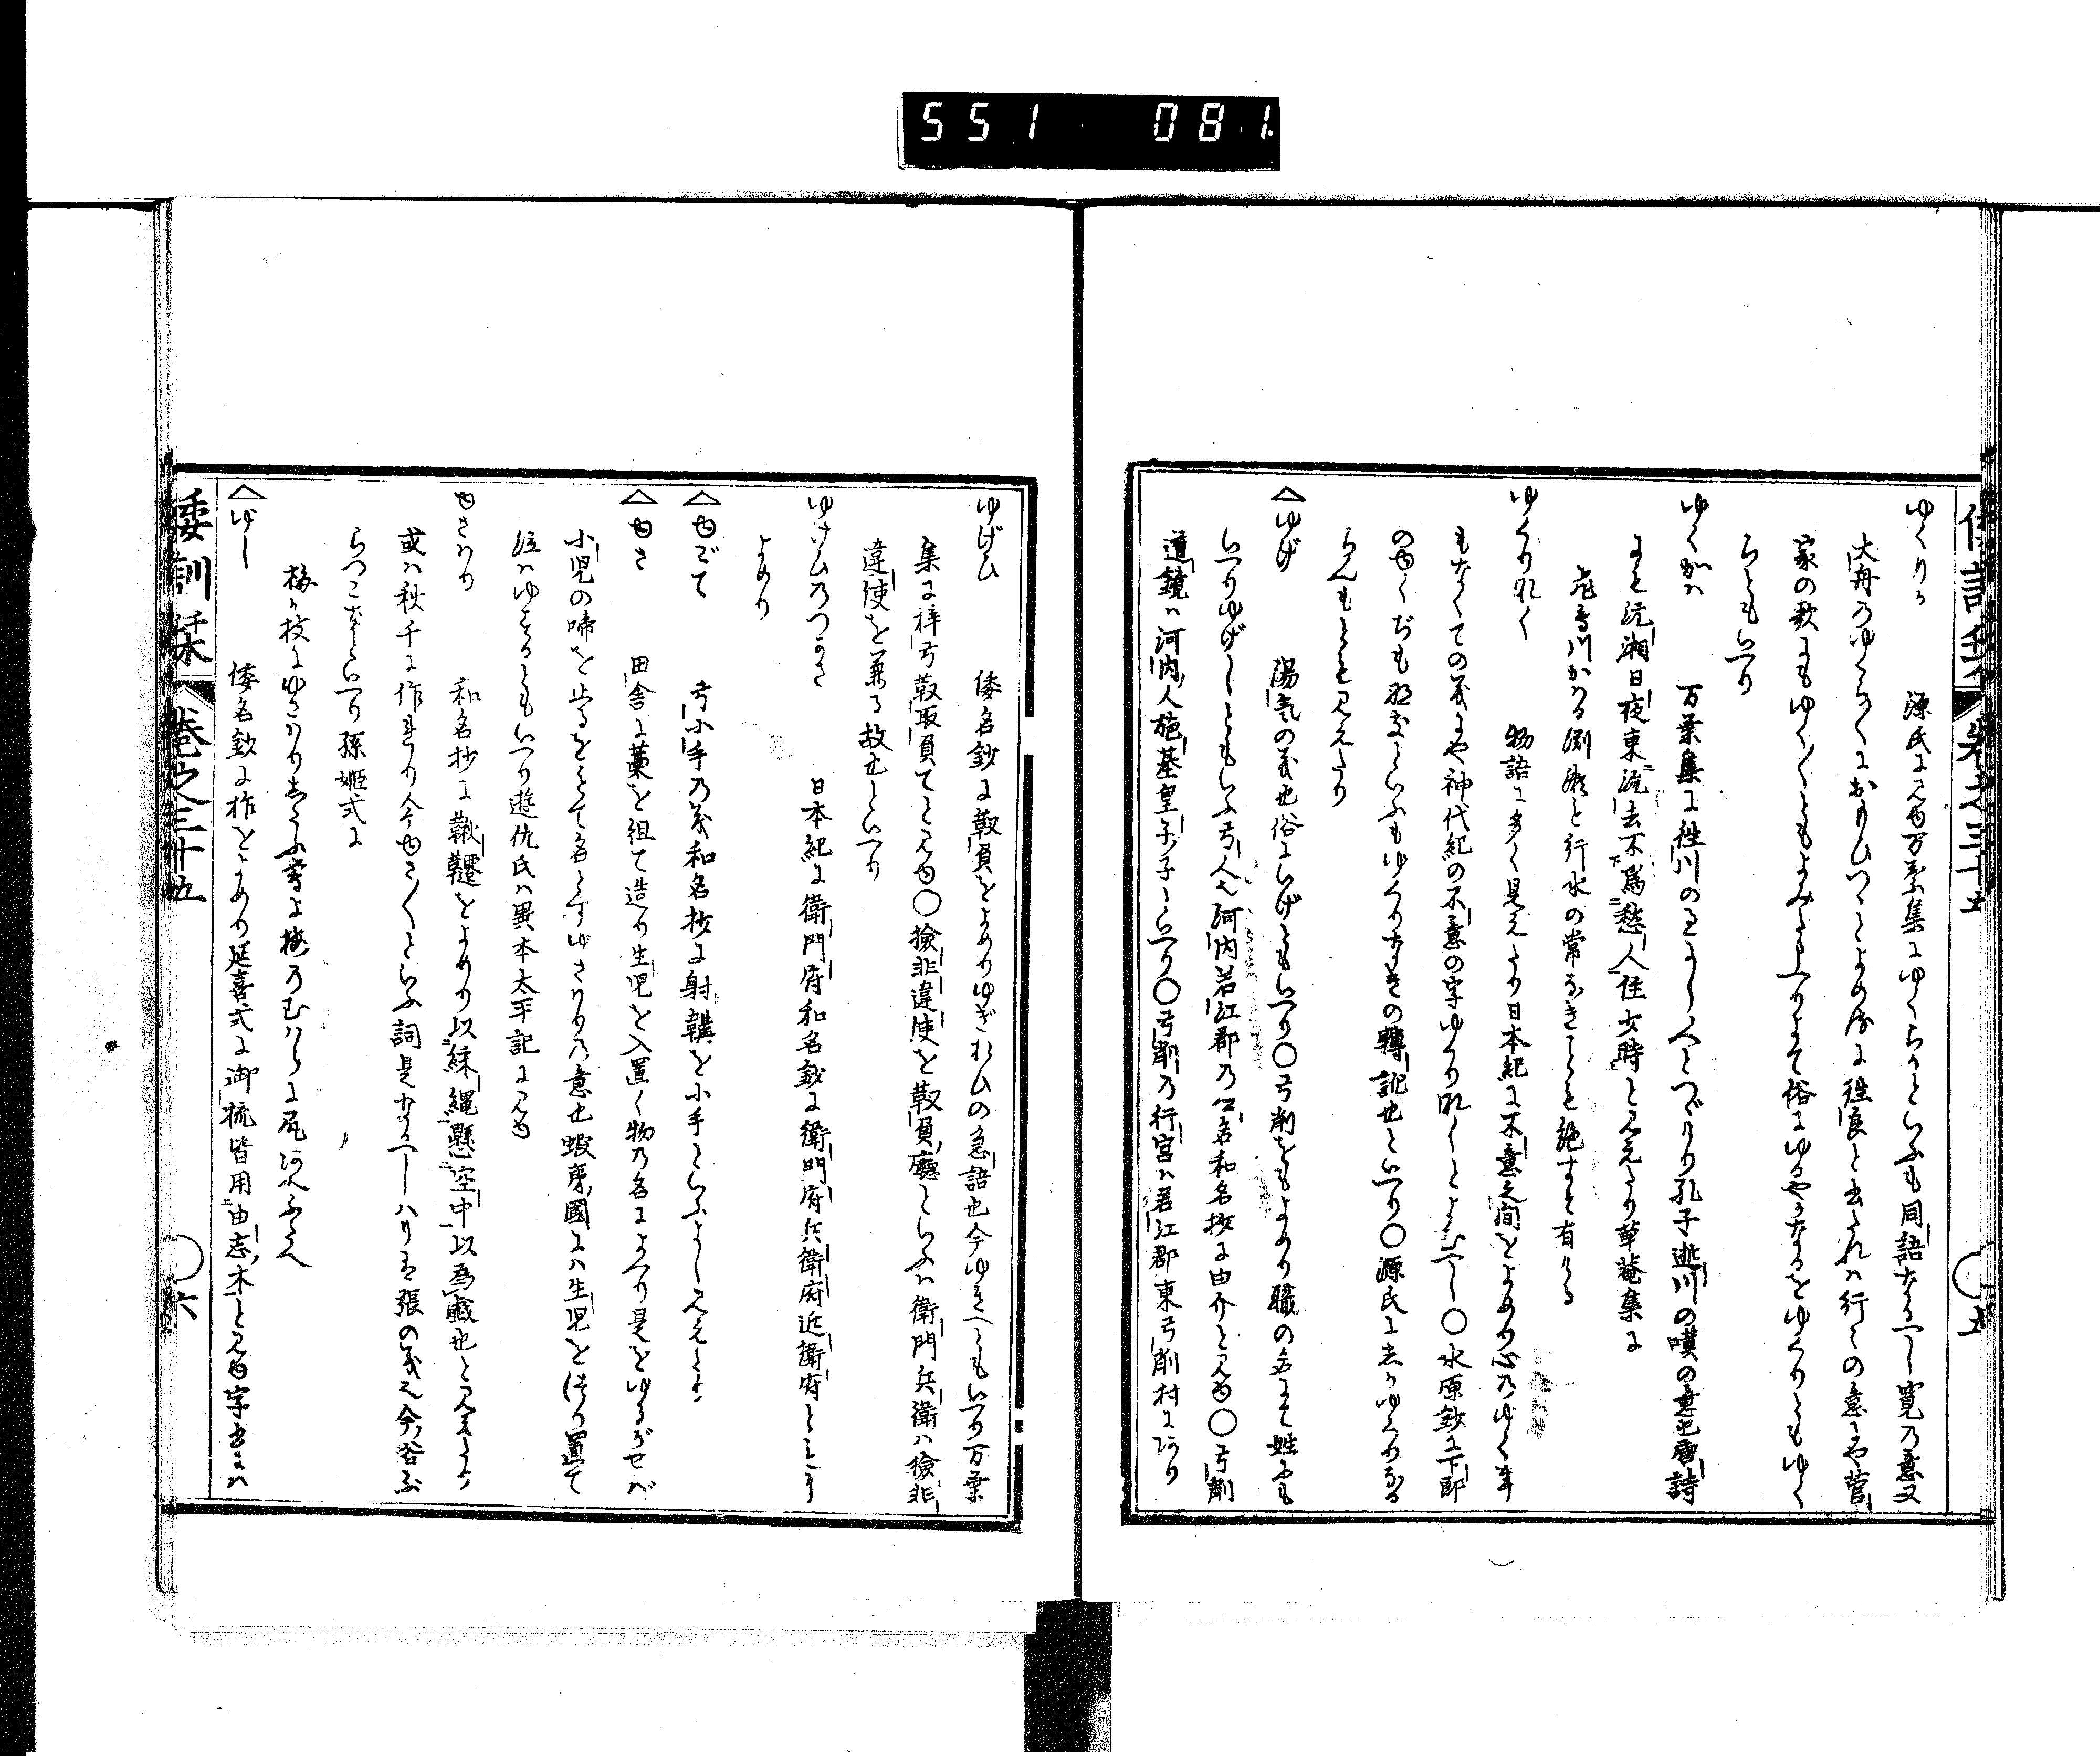 551 081
ゆくりか 源氏に見ゆ万葉集にゆくらかといふも同語なるべし寛の意又
大舟のゆくら〳〵におもひつゝとよめるに往良と書たれハ行くの意にや菅
家の歌にもゆく〳〵ともよみたまへりよて俗にゆるやかなるをゆくりともゆく
らともいへり
ゆくかは 万葉集に往川の
にて沅湘日夜東流去不為愁人住少時と見えたり草菴集に
飛鳥川かはる淵瀬と行水の常なきことそ絶すそ有ける
ゆくりなく 物語に多く見えたり日本紀に不意之間をよめり心のゆくりも
もなくての義にや神代紀の不意の字ゆくりなくとよむべし〇水原鈔に下郎
のゆくぢも
らんもとそ見えたり
△ゆげ 湯気の義也俗にいげともいへり〇弓削をもよめり職の名にて姓にも
いへりゆげしともいふ弓人也河内若江郡の公名和名抄に由介と見ゆ〇弓削
道鏡ハ河内人施基皇子子といへり〇弓削の行宮ハ若江郡東弓削村にあり
倭訓栞 巻之三十五 〇五
ゆげひ 倭名鈔に靫負をよめりゆぎおひの急語也今ゆきへともいへり万葉
集に梓弓靫取負てと見ゆ〇検非違使を靫負廳といふハ衛門兵衛ハ検非
違使を兼る故也といへり
ゆけひのつかさ 日本紀に衛門府和名鈔に衛門府兵衛府近衛府とも
よめり
△ゆごて 弓小手の義和名抄に射韝を小手といふよし見えたり
△ゆさ 田舎に藁を組て造り生児を入置く物の名によべり是をゆるがせば
小児の啼を止るをもて名とすゆさはりの意也蝦夷國にハ生児をつり置て
泣ハゆするともいへり遊仇氏ハ異本太平記に見ゆ
ゆさはり 和名抄に鞦韆をよめり以綵縄懸空中以為戯也と見えたり
或ハ秋千に作れり今ゆさ〳〵といふ詞是なるべしハりは張の義也今俗ぶ
らつこなといへり孫姫式に
梅か枝にゆさはりしたふ
△ゆし 倭名鈔に柞をよめり延喜式に御梳皆用由志木と見ゆ字書にハ
倭訓栞 巻之三十五 〇六